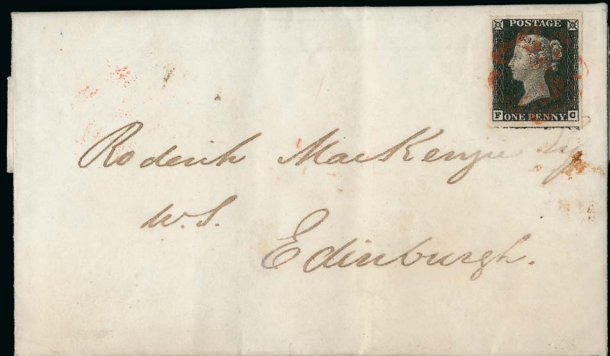 POSTAGE
ONE PENNY
F G
Roderick MacKenzie Esq
W.S.
Edinburgh.